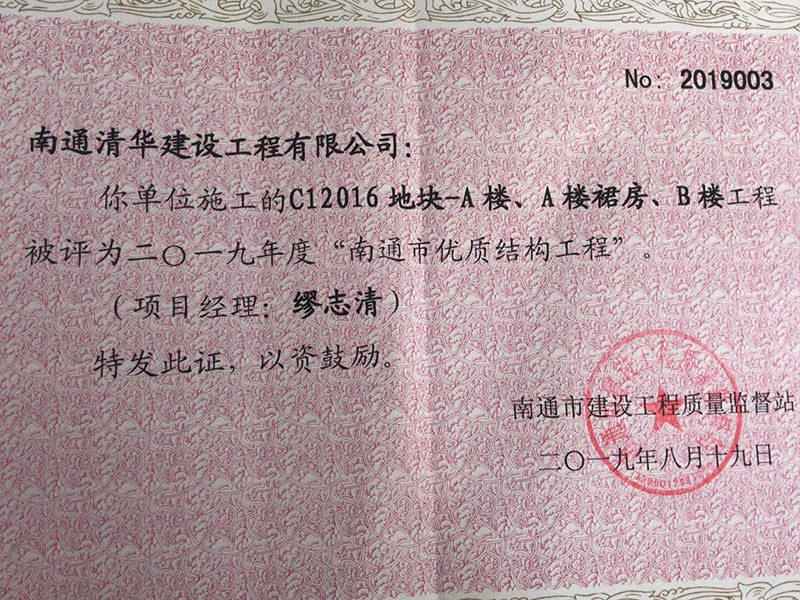 No: 2019003
南通清华建设工程有限公司:
你单位施工的C12016地块-A楼、A楼裙房、B楼工程
被评为二〇一九年度“南通市优质结构工程”。
(项目经理: 缪志清)
特发此证, 以资鼓励。
南通市建设工程质量监督站
二〇一九年八月十九日